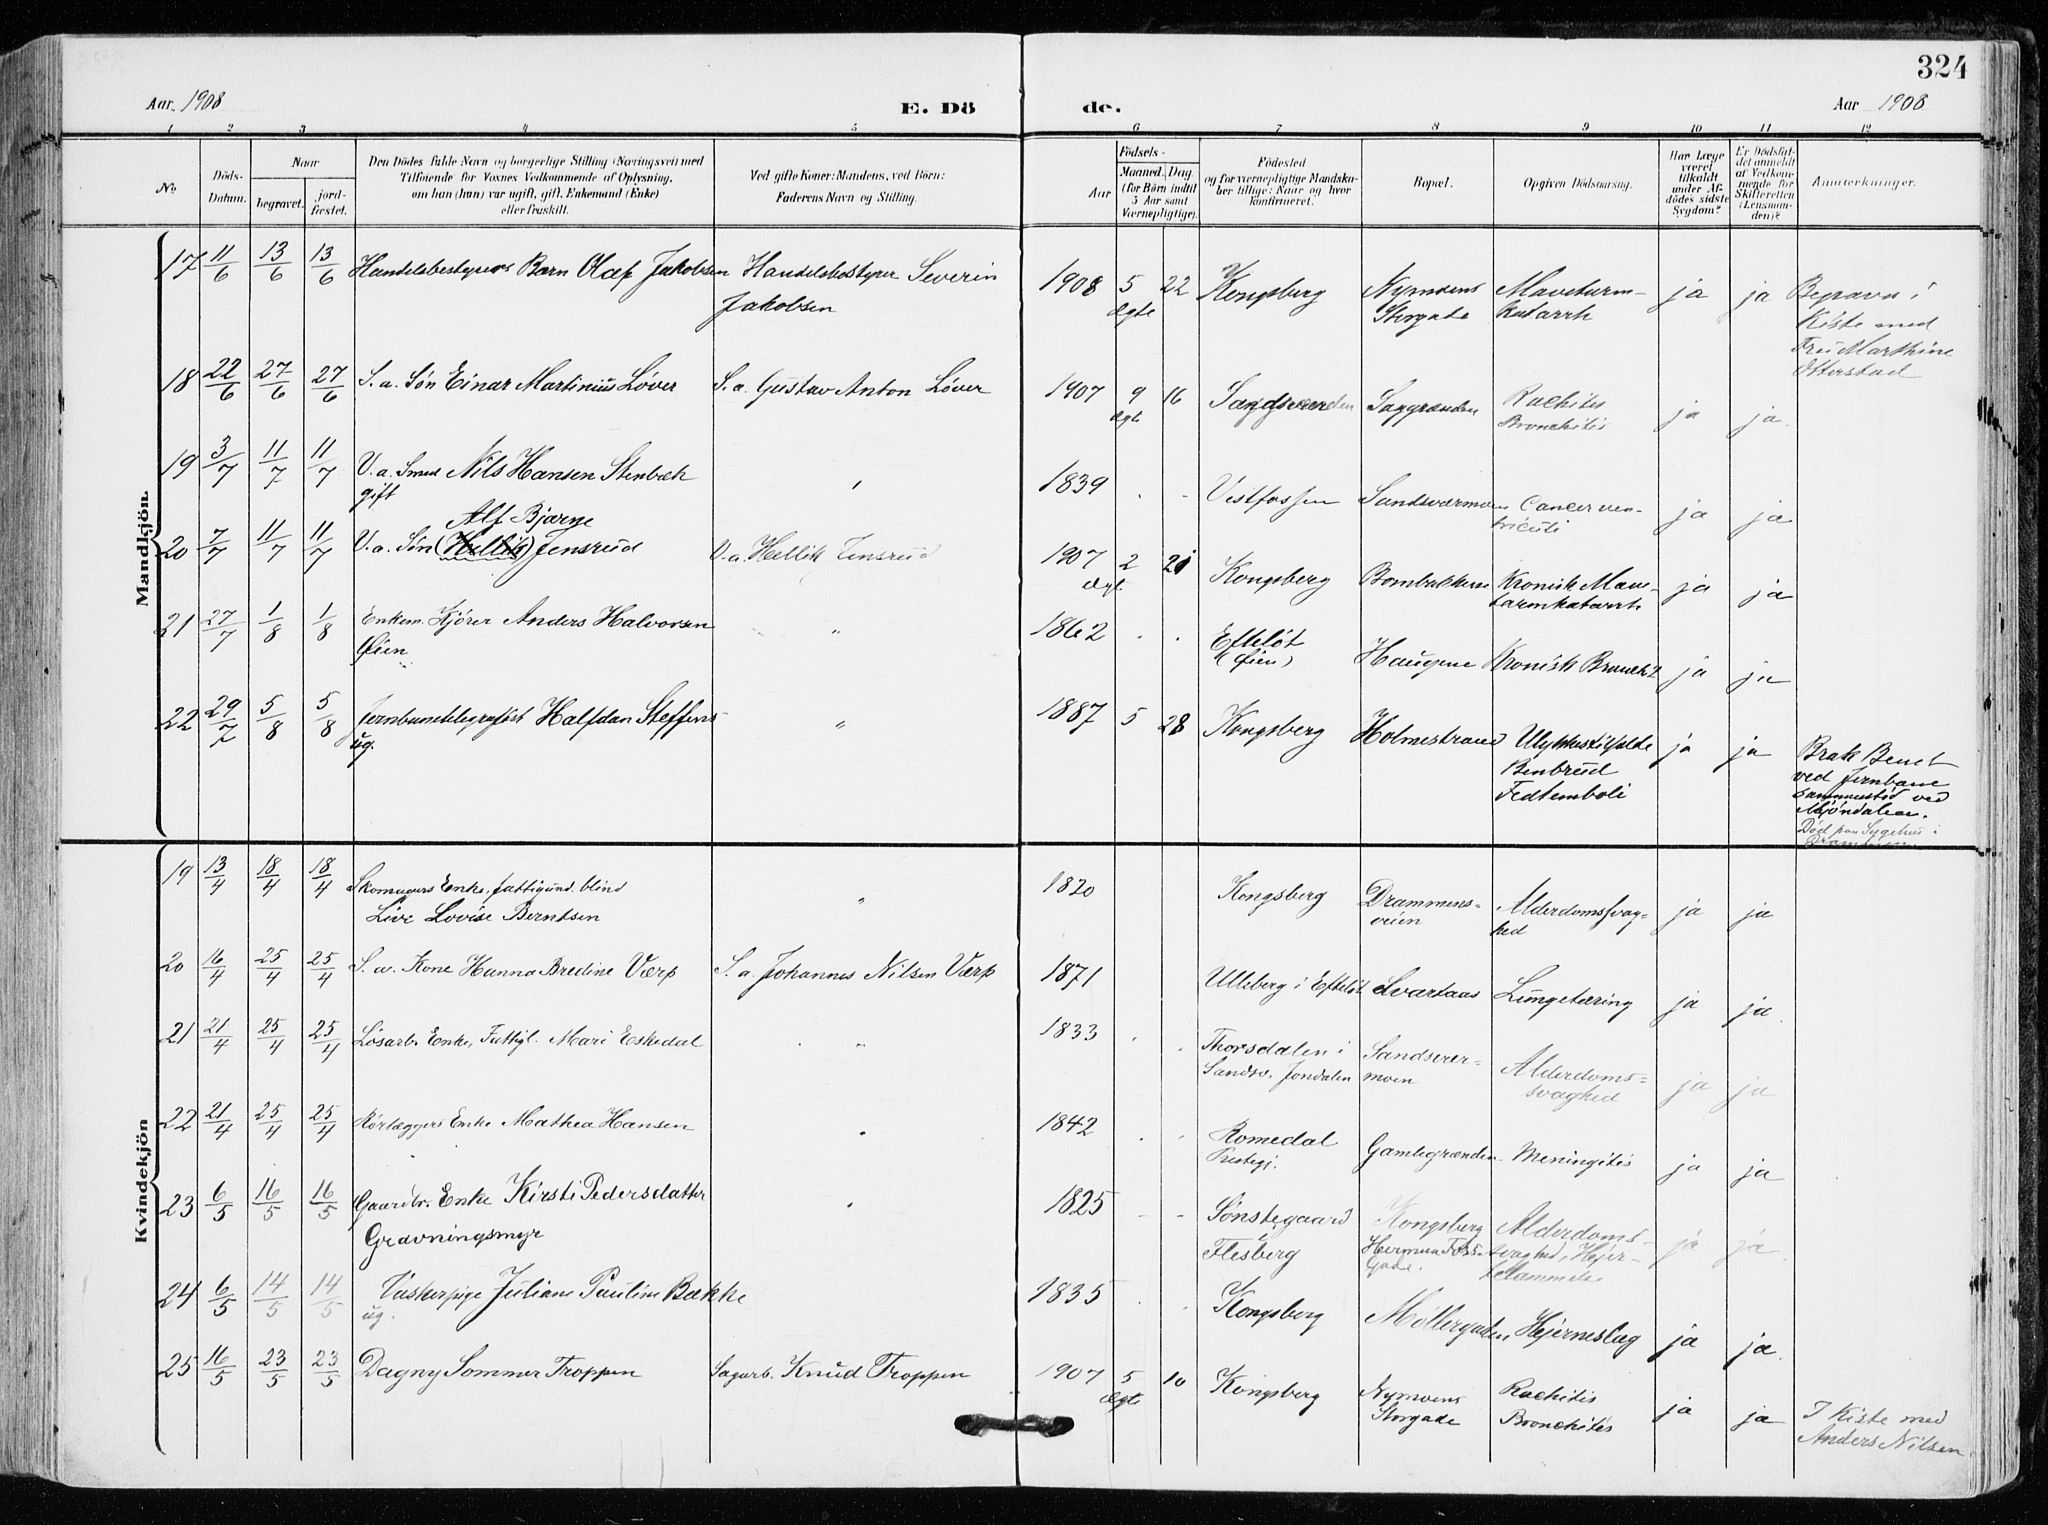 324
Aar 1908 E. Dö de. Aar 1908
1 2 3 4 5 6 7 8 9 10 11 12
No
Döds-Datum.
Naar
begravet.
jord-fæstet.
Den Dödes fulde Navn og borgerlige Stilling (Næringsvei) med
Tilföiende for Voxnes Vedkommende af Oplysning,
om han (hun) var ugift, gift, Enkemand (Enke)
eller fraskilt.
Ved gifte Koner: Mandens, ved Börn:
Faderens Navn og Stilling.
Födsels-
Aar
Maaned. Dag
(for Börn indtil
5 Aar samt
Værnepligtige).
Födested
og for værnepligtige Mandska-
ber tillige: Naar og hvor
konfirmeret.
Bopæl.
Opgiven Dödsaarsag.
Har Læge
været
tilkaldt
under Af-
dödes sidste
Sygdom?
Er Dödsfal-
det anmeldt
af Vedkom-
mende for
Skifteretten
(Lensman-
den)?
Anmærkninger.
Mandkjön.
17 11/6 13/6 13/6 Handelsbestyrers Barn Olaf Jakobsen Handelsbestyrer Severin
Jakobsen
1908 5 22 Kongsberg Nymoens Mavetarm- ja ja Begravet i
ægte Storgade katarrh Kiste med
Fru Marthine
Otterstad
18 22/6 27/6 27/6 S.a. Søn Einar Martinius Løver S.a. Gustav Anton Løver
1907 9 16 Sandsværden Saggrænden Rachitis ja ja.
ægte Bronchitis
19 3/7 11/7 11/7 V.a. Smed Nils Hansen Stenbæk
gift
1839 Vestfossen Sandsværmoen Cancer ven- ja ja
triculi
Alf Bjarne
20 7/7 11/7 11/7 V.a. Søn (Hellik) Jensrud V.a. Hellik Jensrud
1907 2 21 Kongsberg Bombakkene Kronisk Mave- ja ja
ægt. tarmkatarrh
21 27/7 1/8 1/8 Enkem. Kjører Anders Halvorsen "
Øien
1862 Efteløt Haugene Kronisk Bronchit ja ja
(Øien)
22 29/7 5/8 5/8 Jernbanetelegrafist Halfdan Steffens "
ug.
1887 5 28 Kongsberg Holmestrand Ulykkestilfælde ja ja Brak Benet
Benbrud ved Jernbane
Fedtemboli sammenstød ved
Mjøndalen.
Død paa Sygehus i
Drammen.
Kvindekjön
19 13/4 18/4 18/4 Skomagers Enke, fattigund. blind "
Live Lovise Berntsen
1820 Kongsberg Drammens- Alderdomssvag- ja ja
veien hed
20 16/4 25/4 25/4 S.a. Kone Hanna Bredine Værp S.a. Johannes Nilsen Værp
1871 Ulleberg i Efteløt Svartaas Lungetæring ja ja
21 21/4 25/4 25/4 Løsarb. Enke, Fattigl. Mari Eskedal "
1833 Thorsdalen i Sandsvær- Alderdoms- ja ja
Sandsv. Jondalen moen svaghed
22 21/4 25/4 25/4 Rørlæggers Enke Mathea Hansen
1842 Romedal Gamlegrænden Meningitis ja ja
Prestegj.
23 6/5 16/5 16/5 Gaardbr. Enke Kirsti Pedersdatter
Gravningsmyr
1825 Sønstegaard Kongsberg Alderdoms- ja ja
Flesberg Herman Foss svaghed, Hjer-
Gade.
24 6/5 14/5 14/5 Vaskerpige Juliane Pauline Bække
ug.
1835 Kongsberg Møllergaden Hjerneslag ja ja.
25 16/5 23/5 23/5 Dagny Sommer Troppen Sagarb. Knud Troppen
1907 5 10 Kongsberg Nymoens Rachitis ja ja I Kiste med
ægte Storgade Bronchitis Anders Nilsen